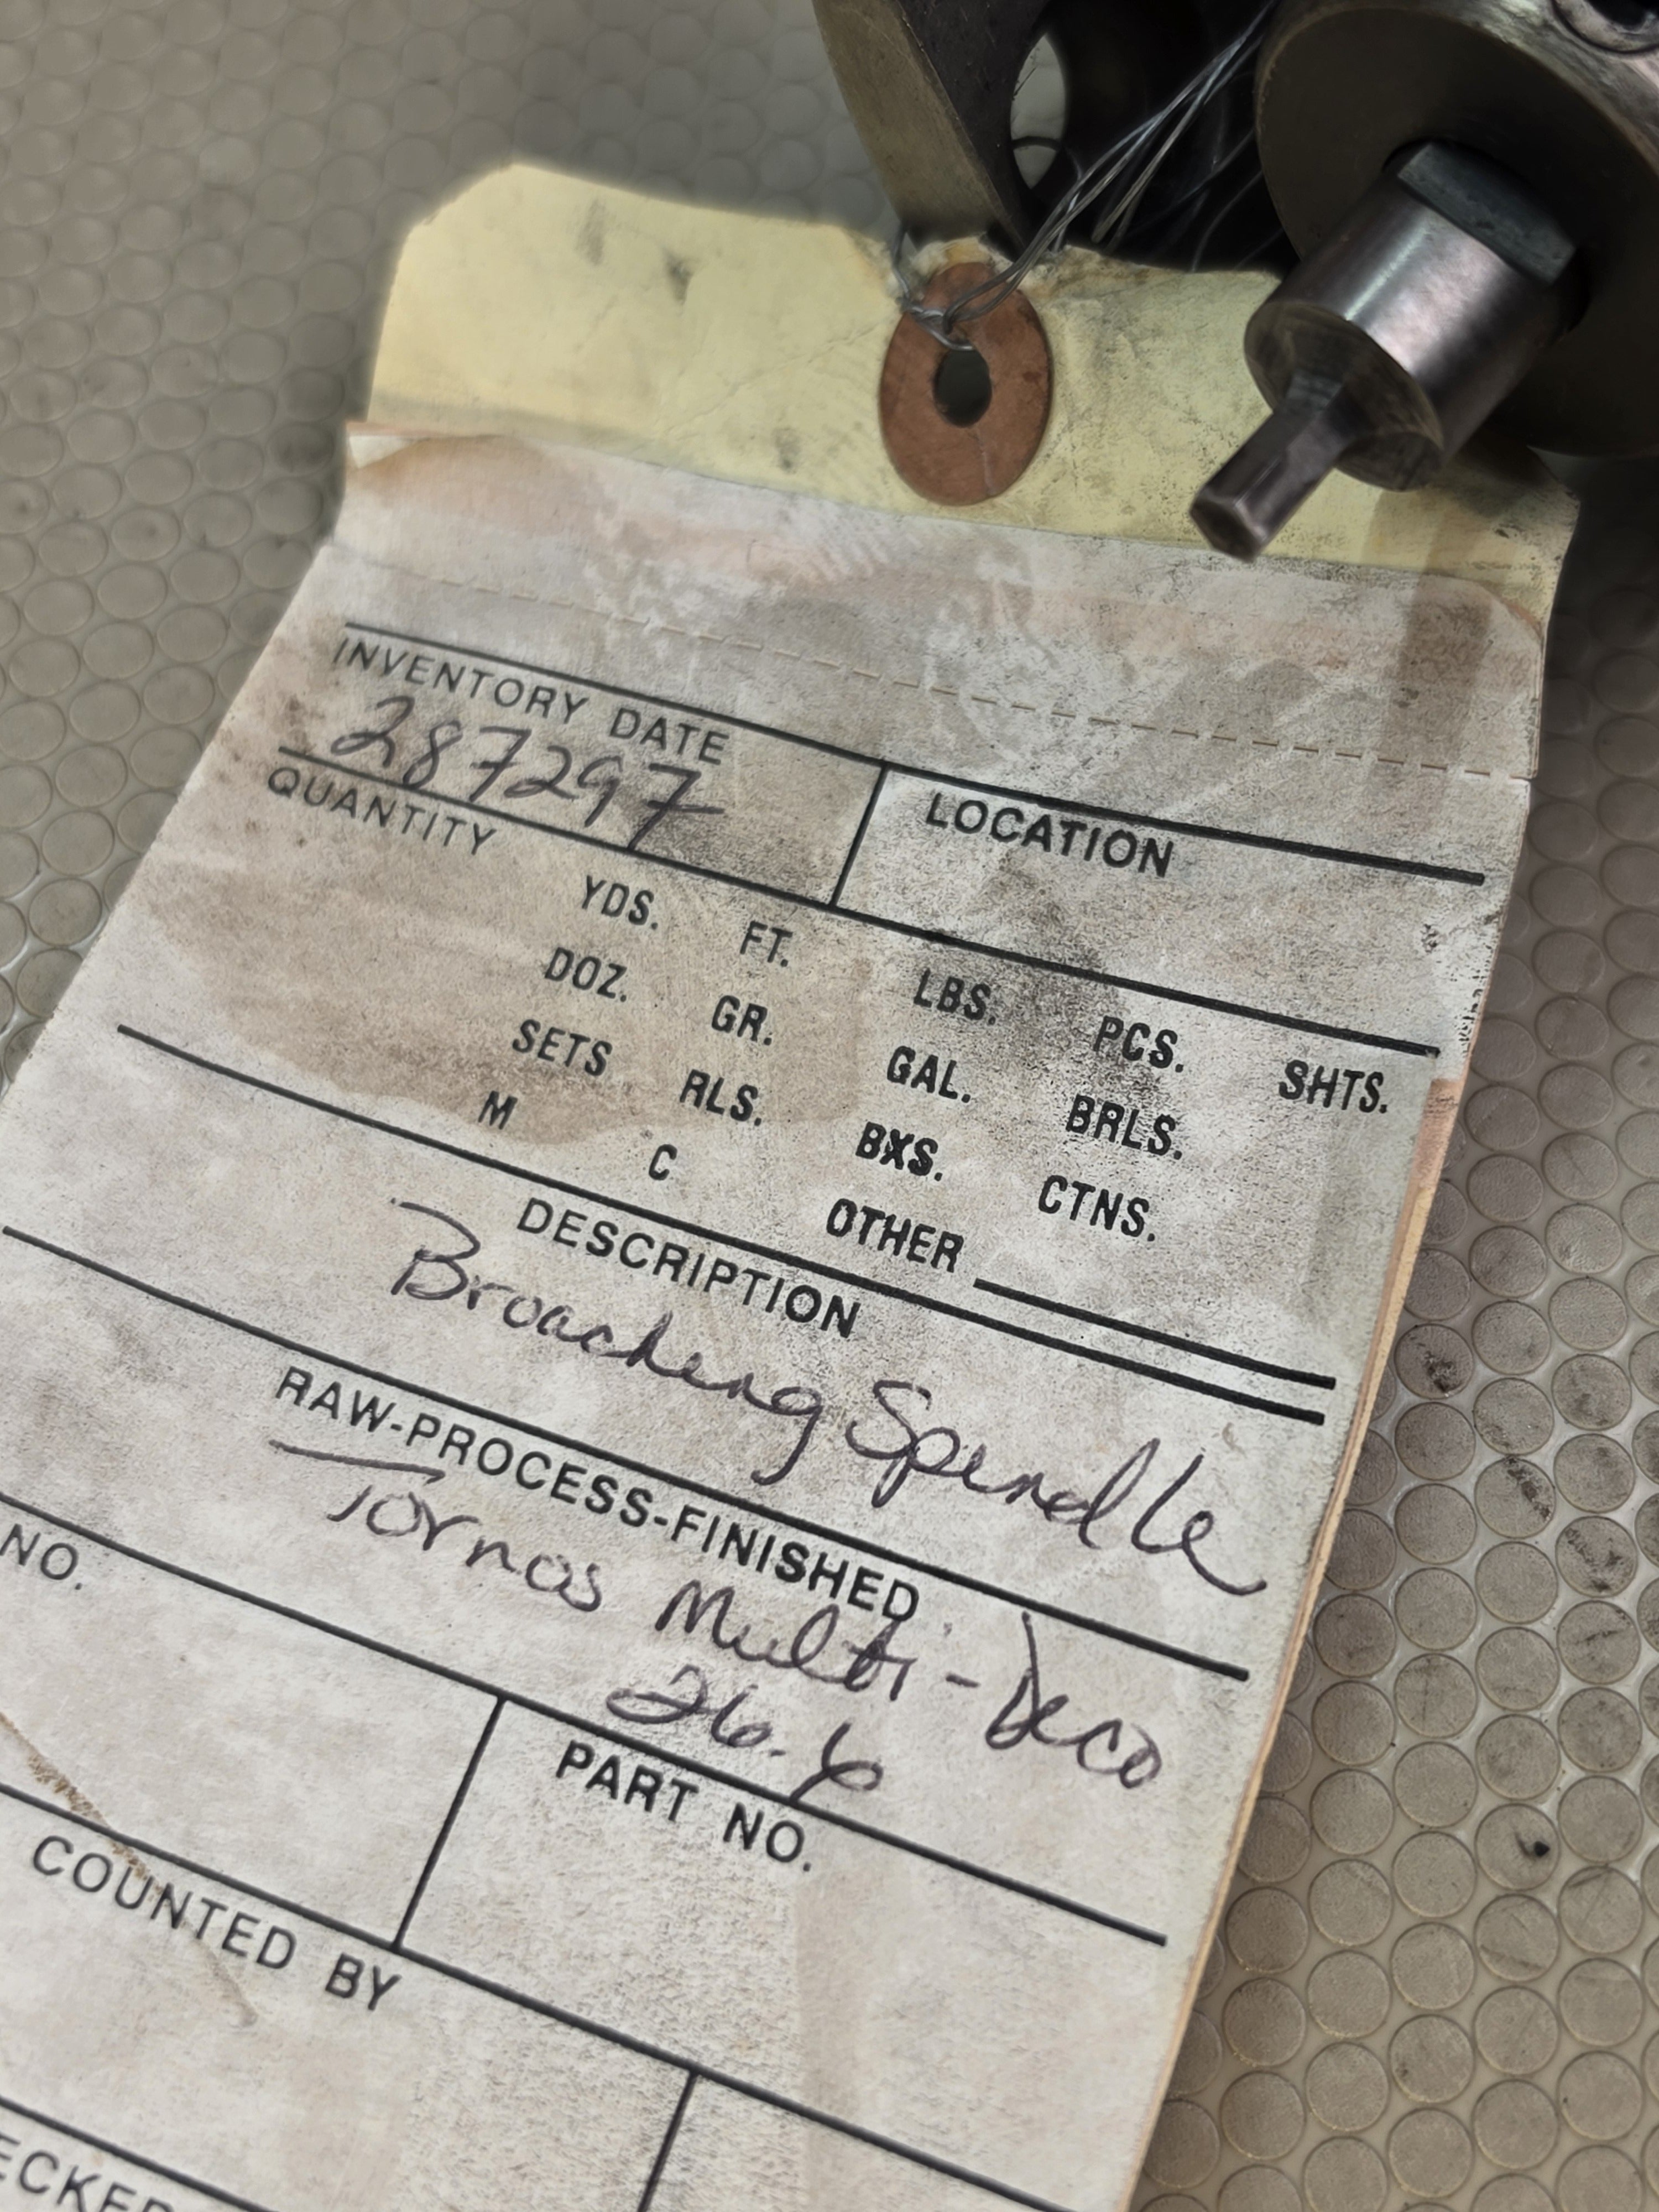 INVENTORY DATE
287297
LOCATION
QUANTITY
YDS. FT. LBS. PCS. SHTS.
DOZ. GR. GAL. BRLS.
SETS RLS. BXS. CTNS.
M C OTHER
DESCRIPTION
Broaching Spindle
RAW-PROCESS-FINISHED
Tornos Multi-Deco
26.6
NO.
PART NO.
COUNTED BY